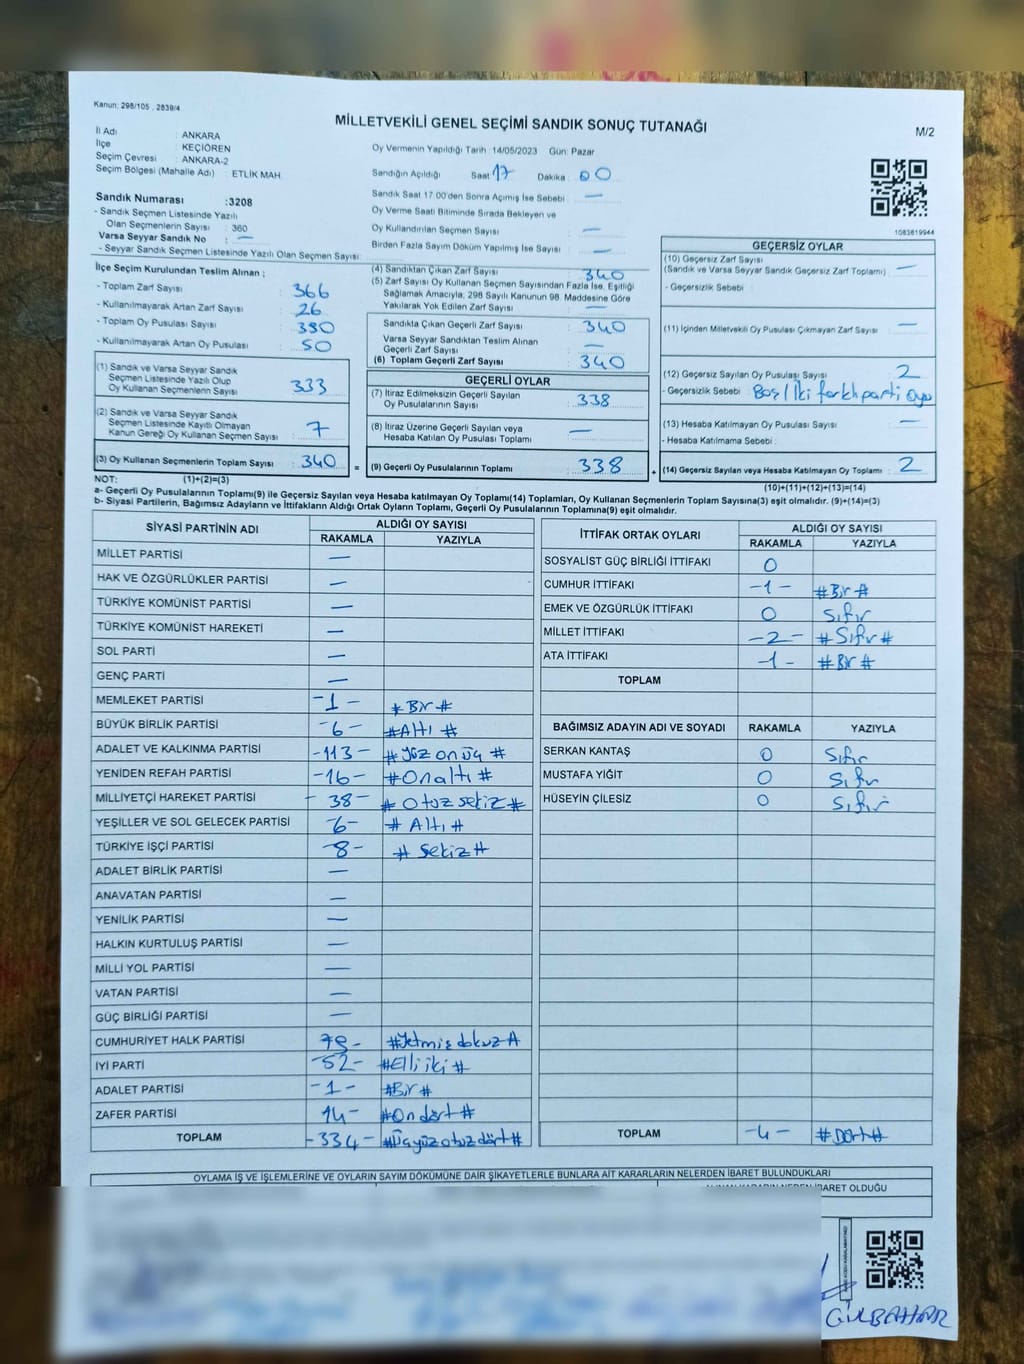 Kanun: 298/105 , 2839/4
MİLLETVEKİLİ GENEL SEÇİMİ SANDIK SONUÇ TUTANAĞI
M/2
İl Adı : ANKARA
İlçe : KEÇİÖREN
Seçim Çevresi : ANKARA-2
Seçim Bölgesi (Mahalle Adı) : ETLİK MAH
Oy Vermenin Yapıldığı Tarih : 14/05/2023 Gün: Pazar
Sandığın Açıldığı Saat : 17 Dakika : 00
Sandık Saat 17.00'den Sonra Açılmış İse Sebebi : —
Oy Verme Saati Bitiminde Sırada Bekleyen ve
Oy Kullandırılan Seçmen Sayısı : —
Birden Fazla Sayım Döküm Yapılmış İse Sayısı : —
1083819944
Sandık Numarası :3208
- Sandık Seçmen Listesinde Yazılı
Olan Seçmenlerin Sayısı : 360
Varsa Seyyar Sandık No : —
- Seyyar Sandık Seçmen Listesinde Yazılı Olan Seçmen Sayısı:
İlçe Seçim Kurulundan Teslim Alınan ;
- Toplam Zarf Sayısı : 366
- Kullanılmayarak Artan Zarf Sayısı : 26
- Toplam Oy Pusulası Sayısı : 380
- Kullanılmayarak Artan Oy Pusulası : 50
(1) Sandık ve Varsa Seyyar Sandık
Seçmen Listesinde Yazılı Olup
Oy Kullanan Seçmenlerin Sayısı : 333
(2) Sandık ve Varsa Seyyar Sandık
Seçmen Listesinde Kayıtlı Olmayan
Kanun Gereği Oy Kullanan Seçmen Sayısı : 7
(3) Oy Kullanan Seçmenlerin Toplam Sayısı : 340
(4) Sandıktan Çıkan Zarf Sayısı : 340
(5) Zarf Sayısı Oy Kullanan Seçmen Sayısından Fazla İse, Eşitliği
Sağlamak Amacıyla, 298 Sayılı Kanunun 98. Maddesine Göre
Yakılarak Yok Edilen Zarf Sayısı : —
Sandıkta Çıkan Geçerli Zarf Sayısı : 340
Varsa Seyyar Sandıktan Teslim Alınan
Geçerli Zarf Sayısı : —
(6) Toplam Geçerli Zarf Sayısı : 340
GEÇERLİ OYLAR
(7) İtiraz Edilmeksizin Geçerli Sayılan
Oy Pusulalarının Sayısı : 338
(8) İtiraz Üzerine Geçerli Sayılan veya
Hesaba Katılan Oy Pusulası Toplamı : —
= (9) Geçerli Oy Pusulalarının Toplamı : 338 +
GEÇERSİZ OYLAR
(10) Geçersiz Zarf Sayısı : —
(Sandık ve Varsa Seyyar Sandık Geçersiz Zarf Toplamı)
- Geçersizlik Sebebi :
(11) İçinden Milletvekili Oy Pusulası Çıkmayan Zarf Sayısı : —
(12) Geçersiz Sayılan Oy Pusulası Sayısı : 2
- Geçersizlik Sebebi : Boş/İki farklı parti oyu
(13) Hesaba Katılmayan Oy Pusulası Sayısı : —
- Hesaba Katılmama Sebebi :
(14) Geçersiz Sayılan veya Hesaba Katılmayan Oy Toplamı : 2
NOT: (1)+(2)=(3)
(10)+(11)+(12)+(13)=(14)
a- Geçerli Oy Pusulalarının Toplamı(9) ile Geçersiz Sayılan veya Hesaba katılmayan Oy Toplamı(14) Toplamları, Oy Kullanan Seçmenlerin Toplam Sayısına(3) eşit olmalıdır. (9)+(14)=(3)
b- Siyasi Partilerin, Bağımsız Adayların ve İttifakların Aldığı Ortak Oyların Toplamı, Geçerli Oy Pusulalarının Toplamına(9) eşit olmalıdır.
SİYASİ PARTİNİN ADI ALDIĞI OY SAYISI
RAKAMLA YAZIYLA
MİLLET PARTİSİ —
HAK VE ÖZGÜRLÜKLER PARTİSİ —
TÜRKİYE KOMÜNİST PARTİSİ —
TÜRKİYE KOMÜNİST HAREKETİ —
SOL PARTİ —
GENÇ PARTİ —
MEMLEKET PARTİSİ -1- #Bir#
BÜYÜK BİRLİK PARTİSİ -6- #Altı#
ADALET VE KALKINMA PARTİSİ -113- #Yüz onüç#
YENİDEN REFAH PARTİSİ -16- #Onaltı#
MİLLİYETÇİ HAREKET PARTİSİ -38- #Otuz sekiz#
YEŞİLLER VE SOL GELECEK PARTİSİ -6- #Altı#
TÜRKİYE İŞÇİ PARTİSİ -8- #Sekiz#
ADALET BİRLİK PARTİSİ —
ANAVATAN PARTİSİ —
YENİLİK PARTİSİ —
HALKIN KURTULUŞ PARTİSİ —
MİLLİ YOL PARTİSİ —
VATAN PARTİSİ —
GÜÇ BİRLİĞİ PARTİSİ —
CUMHURİYET HALK PARTİSİ 79- #Yetmiş dokuz#
İYİ PARTİ -52- #Elli iki#
ADALET PARTİSİ -1- #Bir#
ZAFER PARTİSİ 14- #On dört#
TOPLAM -334- #Üçyüzotuzdört#
İTTİFAK ORTAK OYLARI ALDIĞI OY SAYISI
RAKAMLA YAZIYLA
SOSYALİST GÜÇ BİRLİĞİ İTTİFAKI 0
CUMHUR İTTİFAKI -1- #Bir#
EMEK VE ÖZGÜRLÜK İTTİFAKI 0 Sıfır
MİLLET İTTİFAKI -2- #Sıfır#
ATA İTTİFAKI -1- #Bir#
TOPLAM
BAĞIMSIZ ADAYIN ADI VE SOYADI RAKAMLA YAZIYLA
SERKAN KANTAŞ 0 Sıfır
MUSTAFA YİĞİT 0 Sıfır
HÜSEYİN ÇİLESİZ 0 Sıfır
TOPLAM -4- #Dört#
OYLAMA İŞ VE İŞLEMLERİNE VE OYLARIN SAYIM DÖKÜMÜNE DAİR ŞİKAYETLERLE BUNLARA AİT KARARLARIN NELERDEN İBARET BULUNDUKLARI
İBARET OLDUĞU
GÜLBAHAR